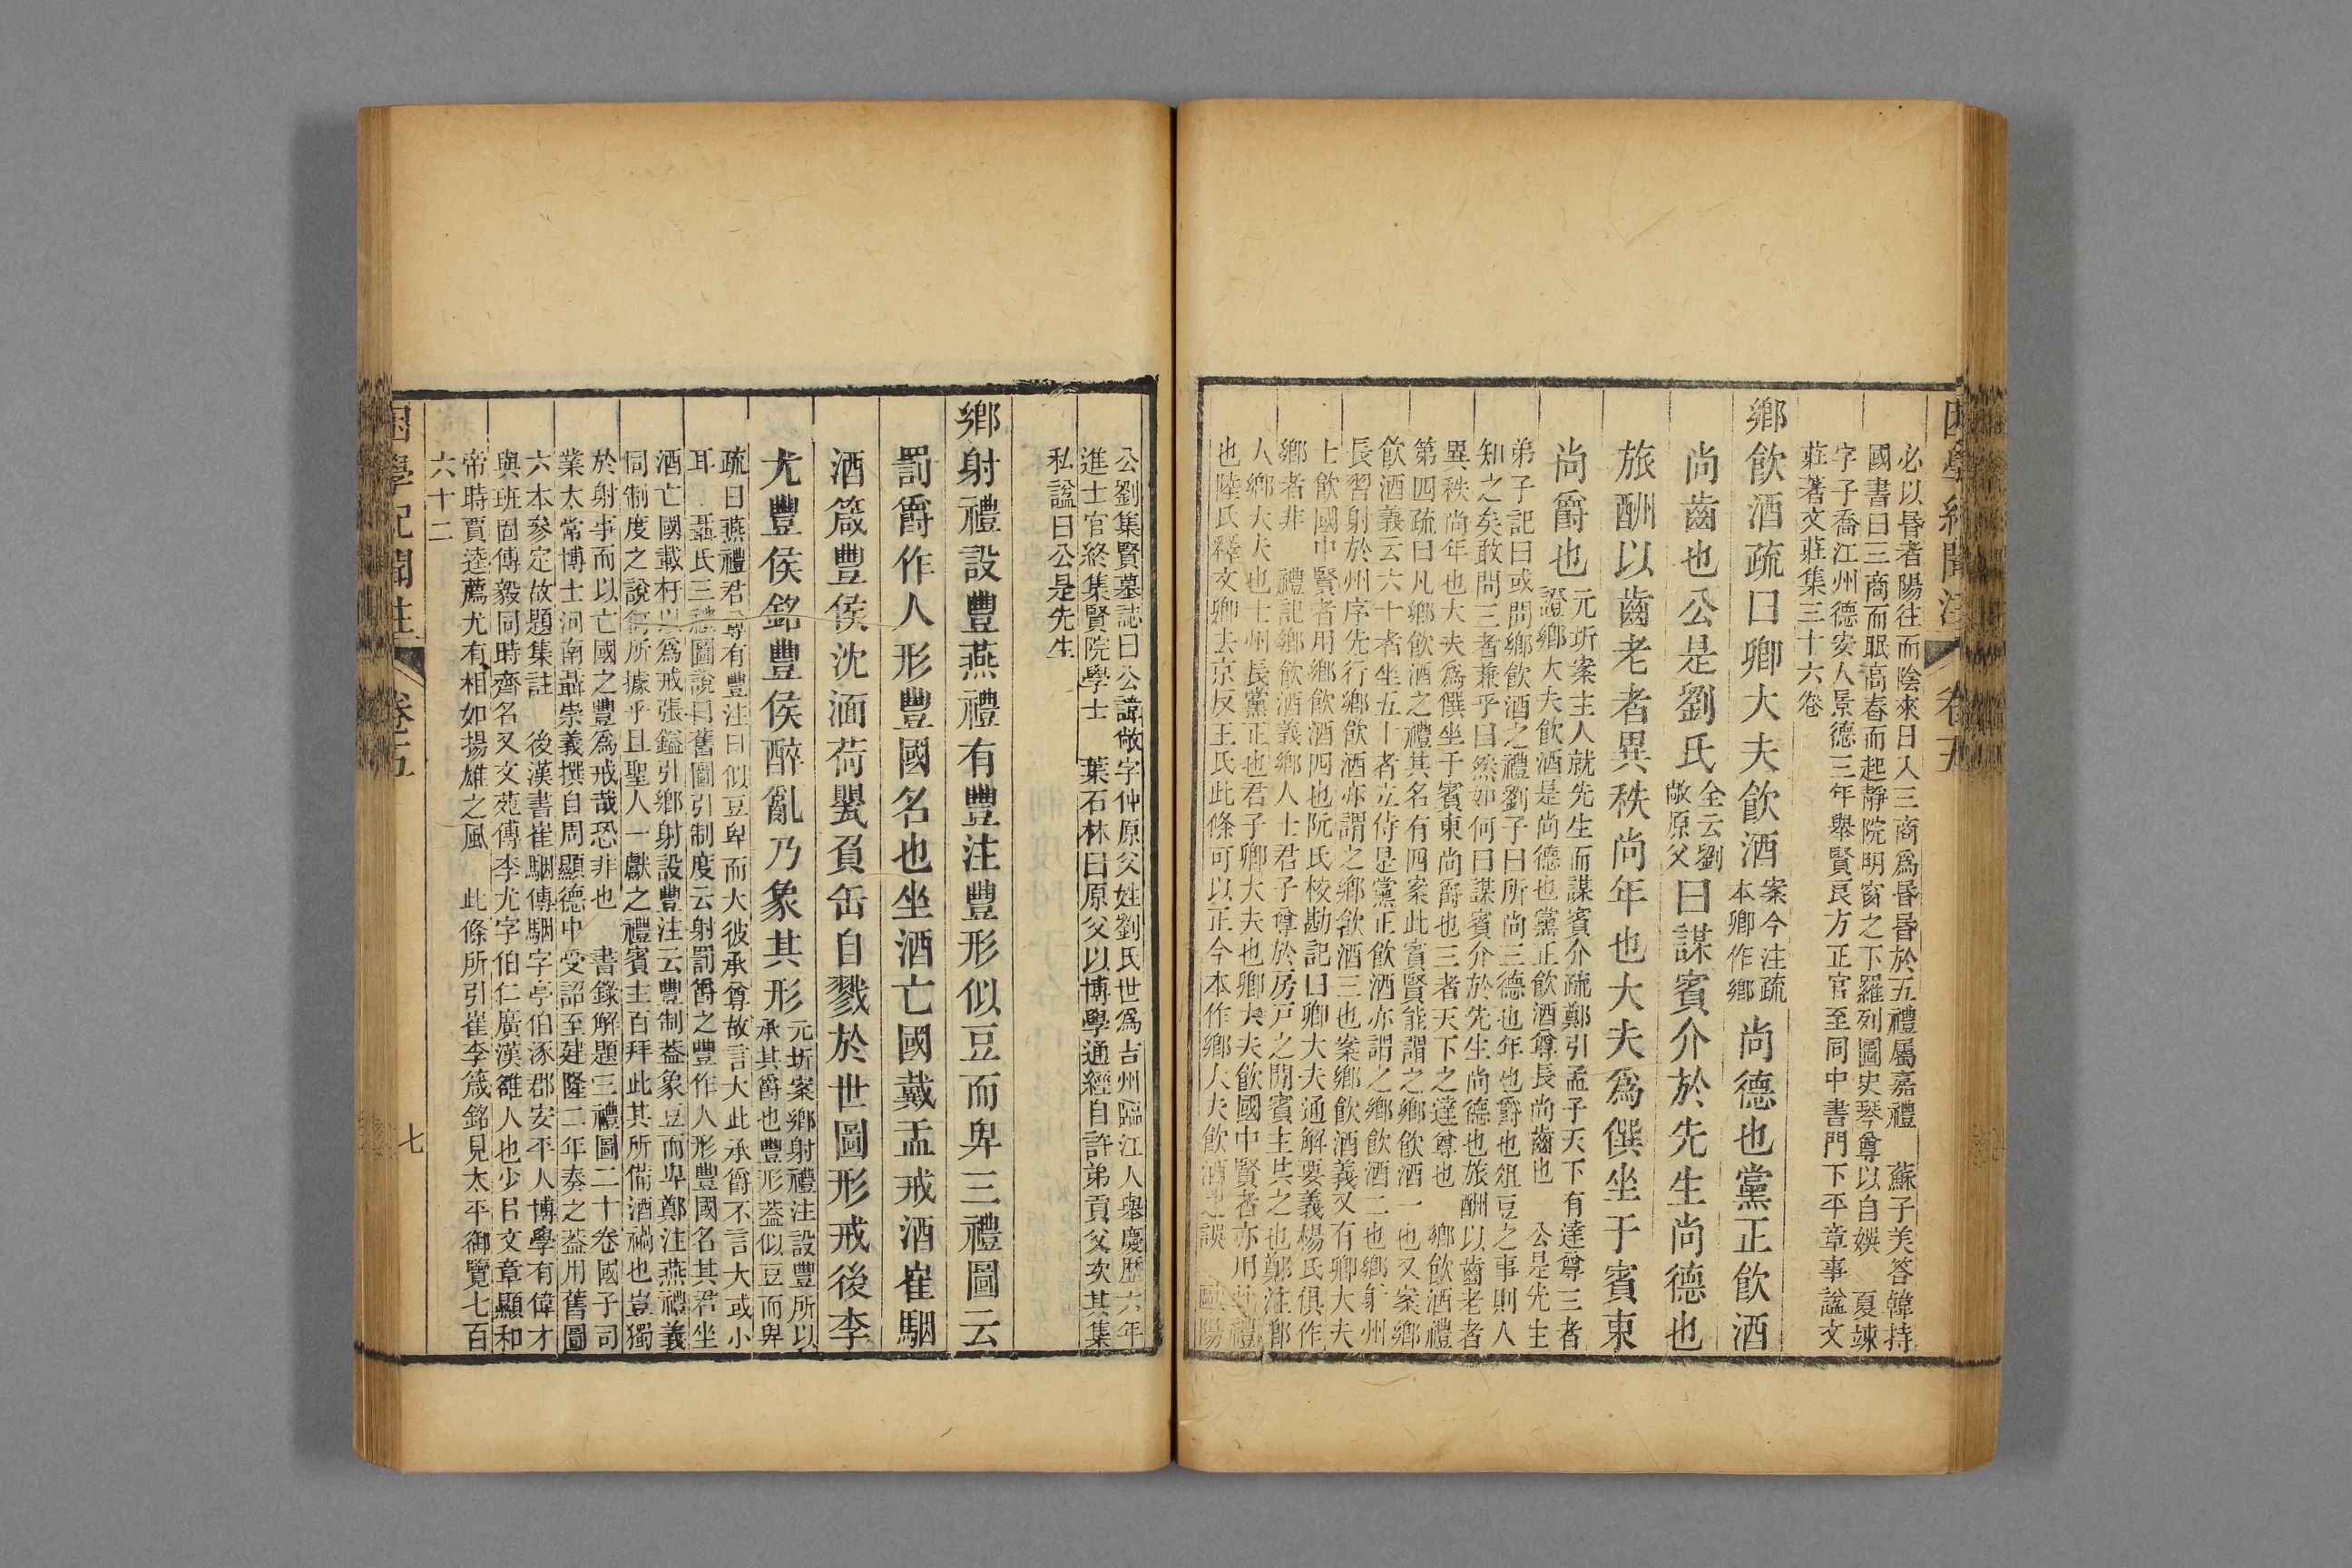 必以昬者陽往而陰來日入三商爲昬昬於五禮屬嘉禮　蘇子美答韓持
國書曰三商而眠高舂而起靜院明窗之下羅列圖史琴尊以自娛　夏竦
字子喬江州德安人景德三年舉賢良方正官至同中書門下平章事諡文
莊著文莊集三十六卷
鄉飲酒疏曰卿大夫飲酒案今注疏本卿作鄉尚德也黨正飲酒
尚齒也公是劉氏全云劉敞原父曰謀賓介於先生尚德也
旅酬以齒老者異秩尚年也大夫爲僎坐于賓東
尚爵也
元圻案主人就先生而謀賓介疏鄭引孟子天下有達尊三者
證鄉大夫飲酒是尚德也黨正飲酒尊長尚齒也　公是先生
弟子記曰或問鄉飲酒之禮劉子曰所尚三德也年也爵也俎豆之事則人
知之矣敢問三者兼乎曰然如何曰謀賓介於先生尚德也旅酬以齒老者
異秩尚年也大夫爲僎坐于賓東尚爵也三者天下之達尊也　鄉飲酒禮
第四疏曰凡鄉飲酒之禮其名有四案此賓賢能謂之鄉飲酒一也又案鄉
飲酒義云六十者坐五十者立侍是黨正飲酒亦謂之鄉飲酒二也鄉射州
長習射於州序先行鄉飲酒亦謂之鄉飲酒三也案鄉飲酒義又有卿大夫
士飲國中賢者用鄉飲酒四也阮氏校勘記曰卿大夫通解要義楊氏俱作
鄉者非　禮記鄉飲酒義鄉人士君子尊於房戶之閒賓主共之也鄭注鄉
人鄉大夫也士州長黨正也君子卿大夫也卿大夫飲國中賢者亦用此禮
也陸氏釋文卿去京反王氏此條可以正今本作鄉大夫飲酒之誤　歐陽
公劉集賢墓誌曰公諱敞字仲原父姓劉氏世爲吉州臨江人舉慶歷六年
進士官終集賢院學士　葉石林曰原父以博學通經自許弟貢父次其集
私諡曰公是先生
鄉射禮設豐燕禮有豐注豐形似豆而卑三禮圖云
罰爵作人形豐國名也坐酒亡國戴盂戒酒崔駰
酒箴豐侯沈湎荷甖負缶自戮於世圖形戒後李
尤豐侯銘豐侯醉亂乃象其形
元圻案鄉射禮注設豐所以
承其爵也豐形葢似豆而卑
疏曰燕禮君尊有豐注曰似豆卑而大彼承尊故言大此承爵不言大或小
耳　聶氏三禮圖說曰舊圖引制度云射罰爵之豐作人形豐國名其君坐
酒亡國載杅以爲戒張鎰引鄉射設豐注云豐制葢象豆而卑鄭注燕禮義
同制度之說何所據乎且聖人一獻之禮賓主百拜此其所備酒禍也豈獨
於射事而以亡國之豐爲戒哉恐非也　書錄解題三禮圖二十卷國子司
業太常博士河南聶崇義撰自周顯德中受詔至建隆二年奏之葢用舊圖
六本參定故題集註　後漢書崔駰傳駰字亭伯涿郡安平人博學有偉才
與班固傅毅同時齊名又文苑傳李尤字伯仁廣漢雒人也少㠯文章顯和
帝時賈逵薦尤有相如揚雄之風　此條所引崔李箴銘見太平御覽七百
六十二
困學紀聞注
卷五
七